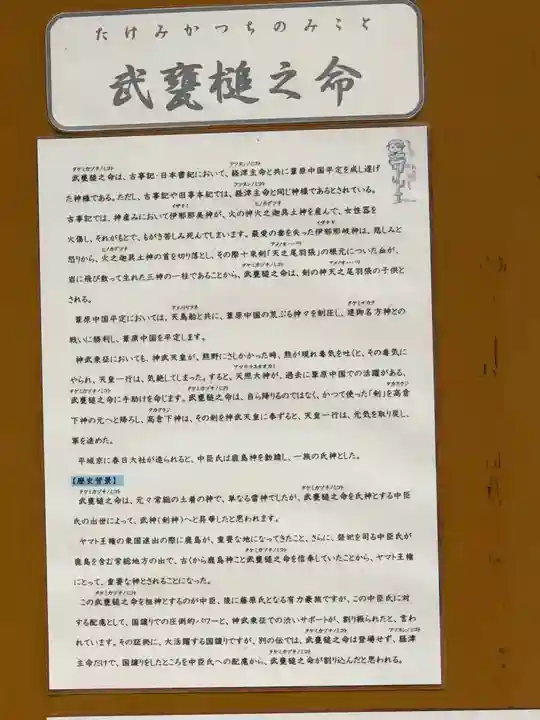 たけみかつちのみこと
武甕槌之命
武甕槌之命は、古事記・日本書紀において、経津主命と共に葦原中国平定を成し遂げ
た神様である。ただし、古事記や旧事本紀では、経津主命と同じ神様であるとされている。
古事記では、神産みにおいて伊耶那美神が、火の神火之迦具土神を産んで、女性器を
火傷し、それがもとで、もがき苦しみ死んでしまいます。最愛の妻を失った伊耶那岐神は、悲しみと
怒りから、火之迦具土神の首を切り落とし、その際十束剣「天之尾羽張」の根元についた血が、
岩に飛び散って生れた三神の一柱であることから、武甕槌之命は、剣の神天之尾羽張の子供と
される。
葦原中国平定においては、天鳥船と共に、葦原中国の荒ぶる神々を制圧し、建御名方神との
戦いに勝利し、葦原中国を平定します。
神武東征においても、神武天皇が、熊野にさしかかった時、熊が現れ毒気を吐くと、その毒気に
やられ、天皇一行は、気絶してしまった。すると、天照大神が、過去に葦原中国での活躍がある、
武甕槌之命に手助けを命じます。武甕槌之命は、自ら降りるのではなく、かつて使った「剣」を高倉
下神の元へと降ろし、高倉下神は、その剣を神武天皇に奉ずると、天皇一行は、元気を取り戻し、
軍を進めた。
平城京に春日大社が造られると、中臣氏は鹿島神を勧請し、一族の氏神とした。
【歴史背景】
武甕槌之命は、元々常総の土着の神で、単なる雷神でしたが、武甕槌之命を氏神とする中臣
氏の出世によって、武神(剣神)へと昇華したと思われます。
ヤマト王権の東国進出の際に鹿島が、重要な地になってきたこと、さらに、祭祀を司る中臣氏が
鹿島を含む常総地方の出で、古くから鹿島神こと武甕槌之命を信奉していたことから、ヤマト王権
にとって、重要な神とされることになった。
この武甕槌之命を祖神とするのが中臣、後に藤原氏となる有力豪族ですが、この中臣氏に対
する配慮として、国譲りでの圧倒的パワーと、神武東征での渋いサポートが、割り振られたと、言わ
れています。その証拠に、大活躍する国譲りですが、別の伝では、武甕槌之命は登場せず、経津
主命だけで、国譲りをしたところを中臣氏への配慮から、武甕槌之命が割り込んだと思われる。